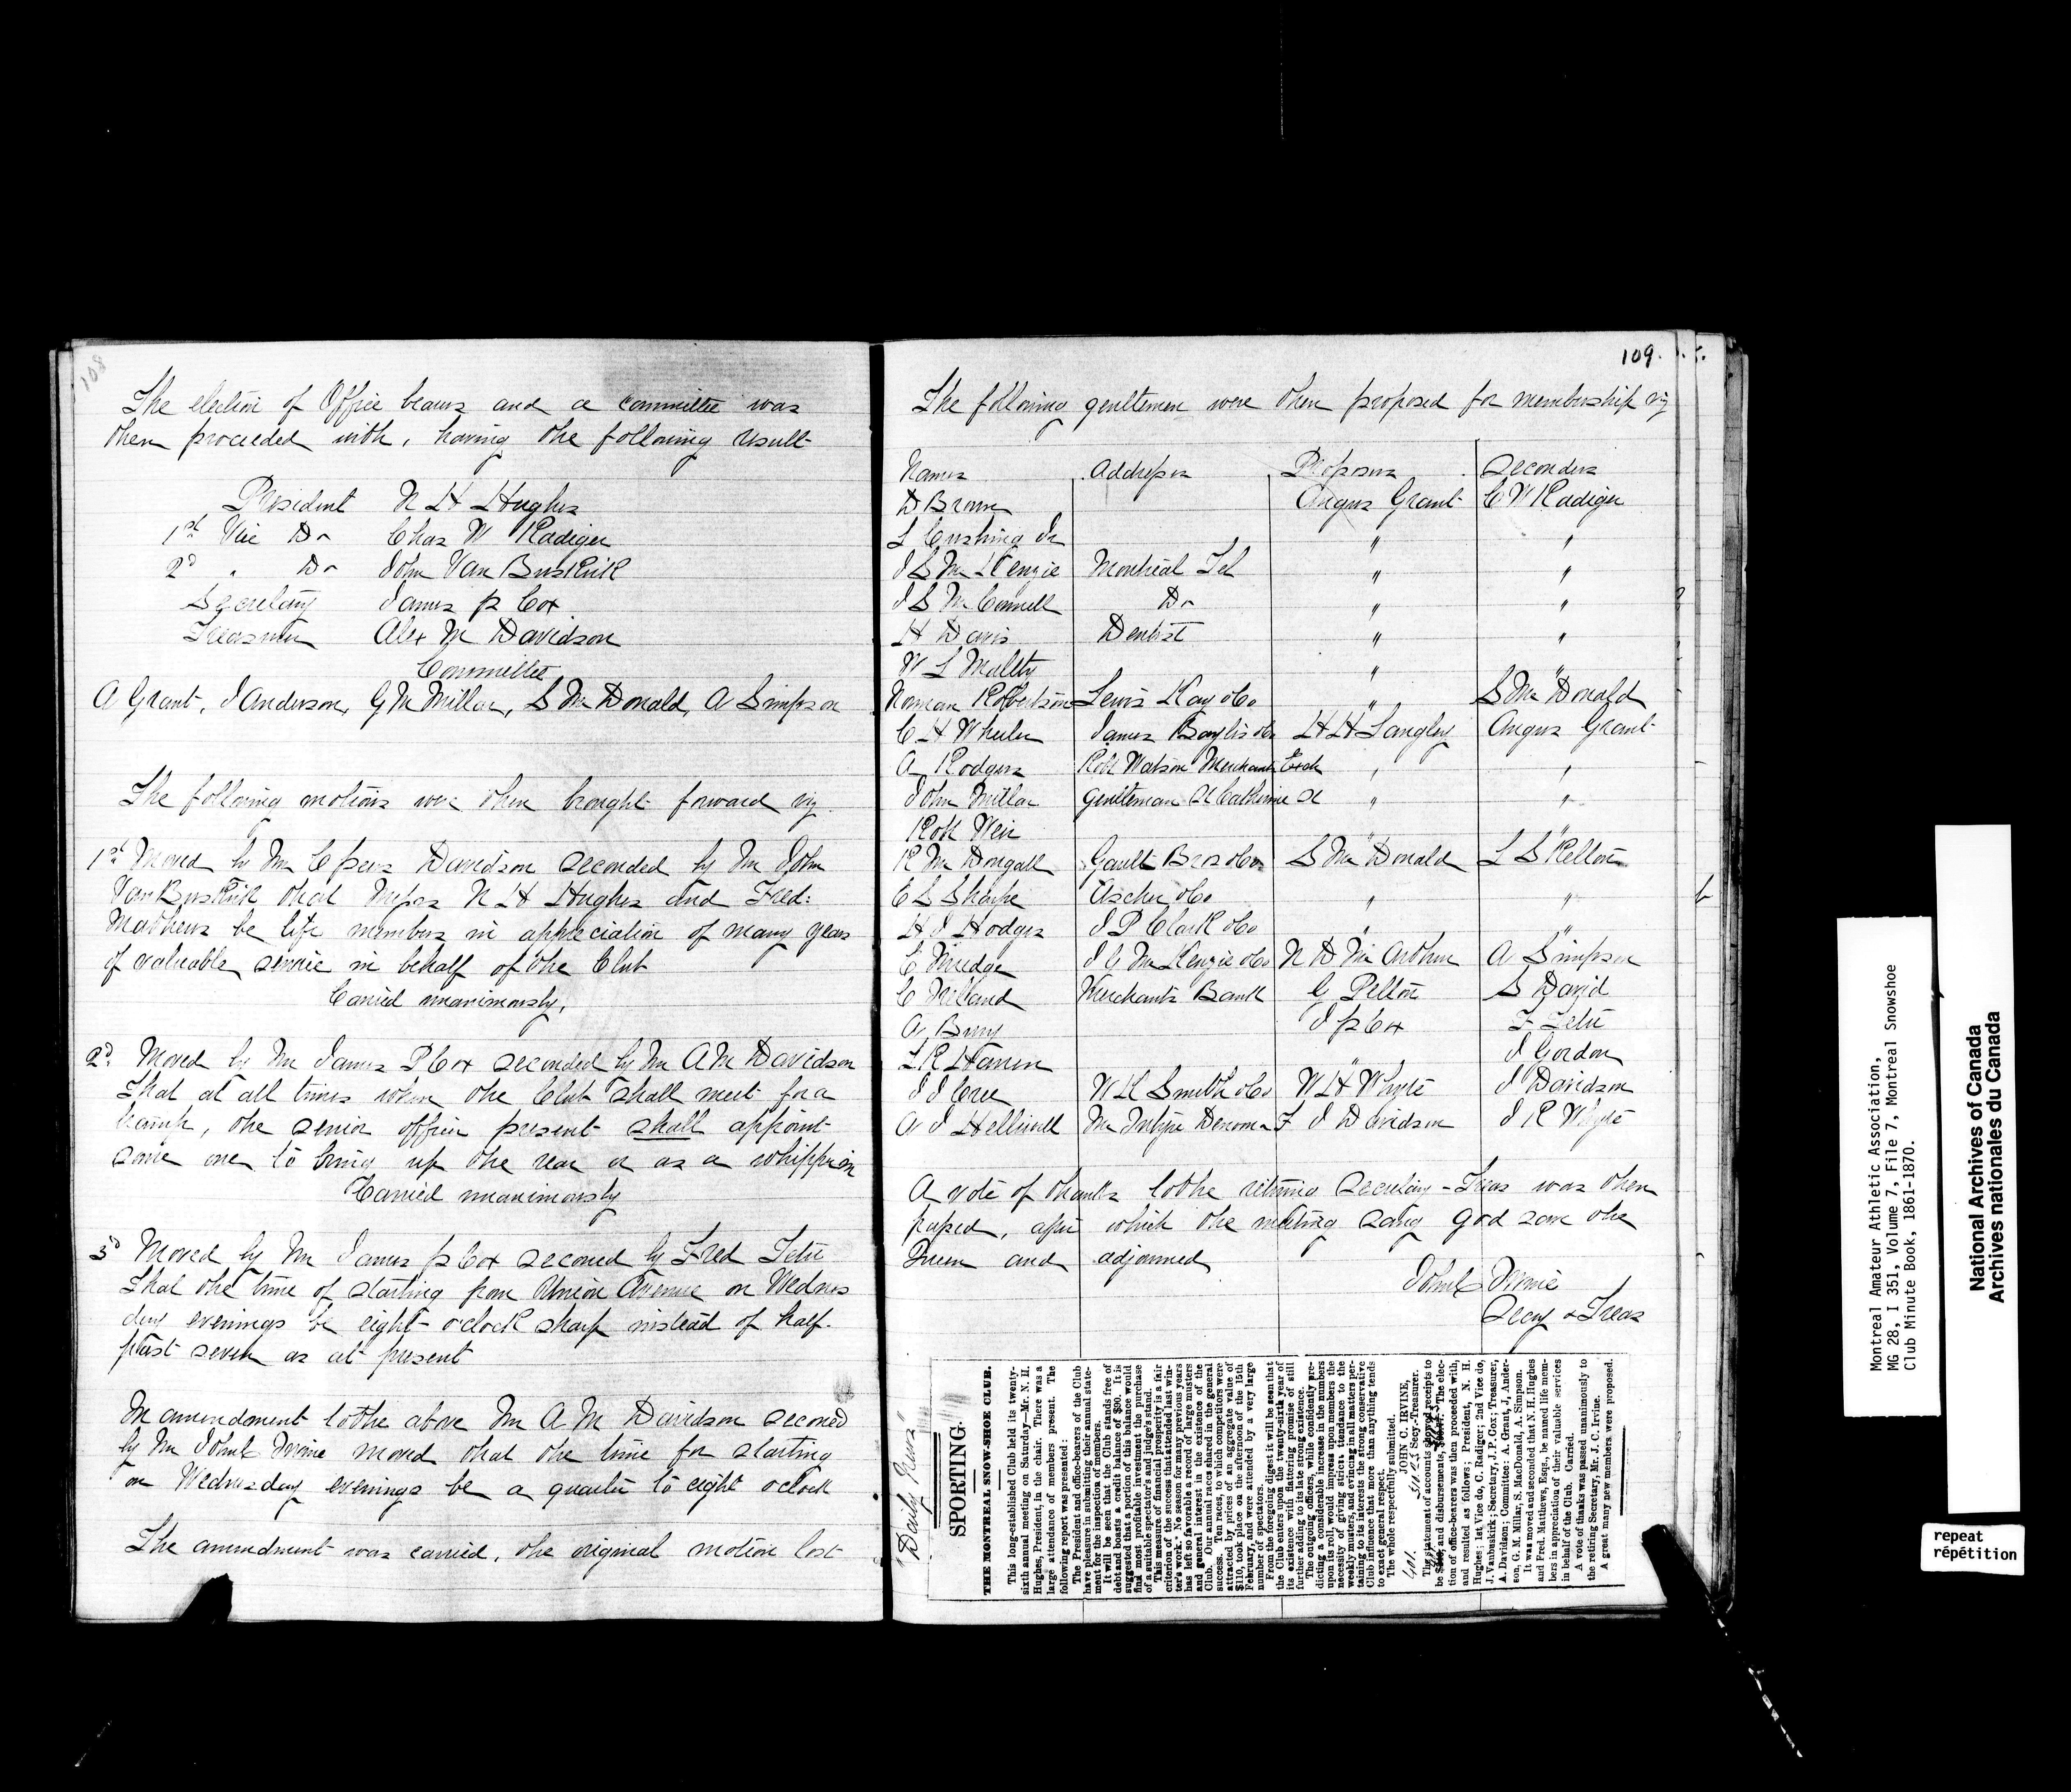 108
The election of Office bearers and a committee was
then proceeded with, having the following result
President N H Hughes
1st Vice Do Chas W Radiger
2d " Do John Van Buskirk
Secretary James P Cox
Treasurer Alex M Davidson
Committee
A Grant, J Anderson, G M Millar, S McDonald, A Simpson
The following motions were then brought forward viz
1st Moved by Mr C Davidson seconded by Mr John
Van Buskirk that Messrs N H Hughes and Fred:
Mathews be life members in appreciation of many years
of valuable service in behalf of the Club
Carried unanimously.
2d. Moved by Mr James P Cox seconded by Mr A M Davidson
That at all times when the Club shall meet for a
tramp, the senior officer present shall appoint
some one to bring up the rear or as a whipper in
Carried unanimously
3d Moved by Mr James P Cox seconed by Fred Tetu
That the time of starting from Union Avenue on Wednes
day evenings be eight o'clock sharp instead of half
past seven as at present
In amendment to the above Mr A M Davidson seconed
by Mr John C Irvine moved that the time for starting
on Wednesday evenings be a quarter to eight oclock
The amendment was carried, the original motion lost
109.
The following gentlemen were then proposed for membership viz
Names Addresses Proposers Seconders
D Brown Angus Grant C W Radiger
L Cushing Jr " "
J S McKenzie Montreal Tel " "
J S McConnell Do " "
H Davis Dentist " "
W L Maltby " "
Norman Robertson Lewis Kay & Co " S McDonald
C H Wheeler James Baylis & Co H H Langley Angus Grant
A Rodgers Robt Watson Merchants Exch " "
John Millar Gentleman St Catherine St " "
Robt Weir " "
R McDougall Gault Bros & Co S McDonald L S Pelton
E L Sharpe Ascher & Co " "
H J Hodges J P Clark & Co " "
C Mudge J G McKenzie & Co N D McArthur A Simpson
C Ireland Merchants Bank G Pelton S David
A Bury J P Cox F Tetu
L R Hamm " J Gordon
J J Cree W H Smith & Co W H Whyte J Davidson
A J Helliwell McIntyre Denoon F J Davidson J R Whyte
A vote of thanks to the retiring Secretary-Treas was then
passed, after which the meeting sang God save the
Queen and adjourned
John C Irvine
Secy & Treas
"Daily News"
SPORTING.
THE MONTREAL SNOW-SHOE CLUB.
This long-established Club held its twenty-
sixth annual meeting on Saturday—Mr. N. H.
Hughes, President, in the chair. There was a
large attendance of members present. The
following report was presented:
The President and office-bearers of the Club
have pleasure in submitting their annual state-
ment for the inspection of members.
It will be seen that the Club stands free of
debt and boasts a credit balance of $90. It is
suggested that a portion of this balance would
find most profitable investment the purchase
of a suitable spectator's and judge's stand.
This measure of financial prosperity is a fair
criterion of the success that attended last win-
ter's work. No season for many previous years
has left so favorable a record of large musters
and general interest in the existence of the
Club. Our annual races shared in the general
success. Ten races, to which competitors were
attracted by prizes of an aggregate value of
$110, took place on the afternoon of the 15th
February, and were attended by a very large
number of spectators.
From the foregoing digest it will be seen that
the Club enters upon the twenty-sixth year of
its existence with flattering promise of still
further adding to its late strong existence.
The outgoing officers, while confidently pre-
dicting a considerable increase in the numbers
upon its roll, would impress upon members the
necessity of giving strict attendance to the
weekly musters, and evincing in all matters per-
taining to its interests the strong conservative
Club influence that more than anything tends
to exact general respect.
The whole respectfully submitted.
JOHN C. IRVINE,
Secy.-Treasurer.
The statement of accounts showed receipts to
be and disbursements, The elec-
tion of office-bearers was then proceeded with,
and resulted as follows; President, N. H.
Hughes; 1st Vice do, C. Radiger; 2nd Vice do,
J. Vanbuskirk; Secretary, J. P. Cox; Treasurer,
A. Davidson; Committee: A. Grant, J, Ander-
son, G. M. Millar, S. MacDonald, A. Simpson.
It was moved and seconded that N. H. Hughes
and Fred. Matthews, Esqs., be named life mem-
bers in appreciation of their valuable services
in behalf of the Club. Carried.
A vote of thanks was passed unanimously to
the retiring Secretary, Mr. J. C. Irvine.
A great many new members were proposed.
Montreal Amateur Athletic Association,
MG 28, I 351, Volume 7, File 7, Montreal Snowshoe
Club Minute Book, 1861-1870.
National Archives of Canada
Archives nationales du Canada
repeat
répétition